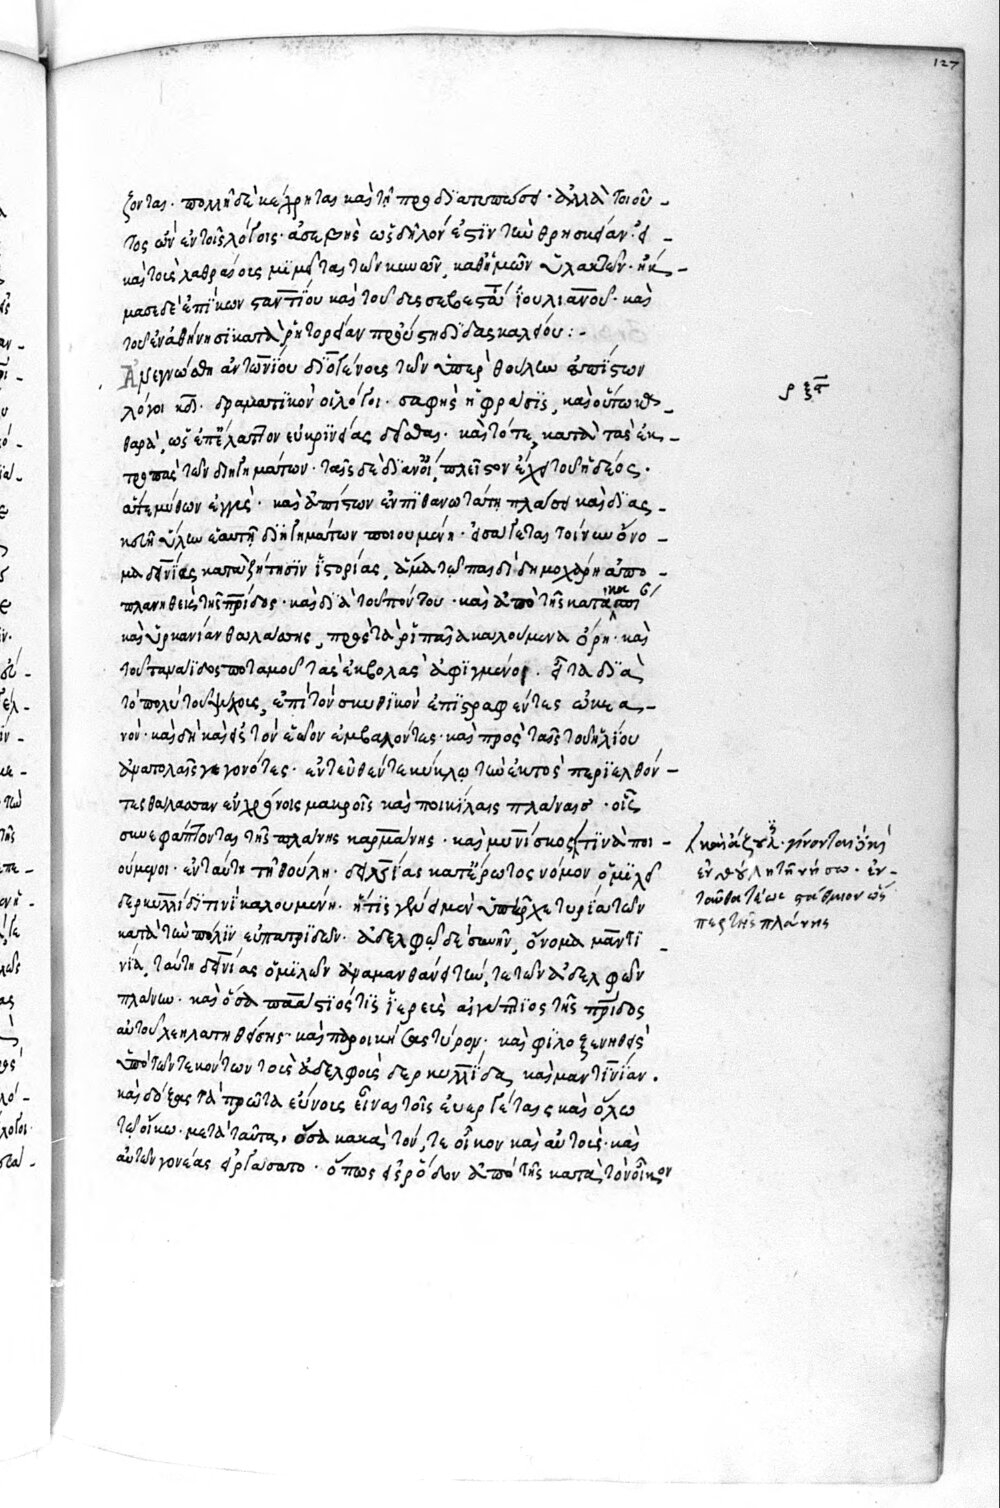 127
ζονται. πολλῇ δὲ κέχρηται καὶ τῇ προδιατυπώσει. ἀλλὰ τοιοῦ-
τος ὢν ἐν τοῖς λόγοις. ἀσεβὴς ὡς δῆλόν ἐστιν τὴν θρησκείαν. εἰ-
καὶ τοῖς λαθραίοις μιμεῖται τῶν κυνῶν, καθ' ἡμῶν ὑλακτεῖν. ἤκ-
μασε δὲ ἐπὶ Κωνσταντίου καὶ τοῦ δυσσεβεστάτου Ἰουλιανοῦ. καὶ
τοῦ ἐν Ἀθήνησι κατὰ ῥητορείαν προύστη διδασκαλείου:-
Ἀνεγνώσθη Ἀντωνίου Διογένους τῶν ὑπὲρ Θούλην ἀπίστων
λόγοι κδ. δραματικὸν οἱ λόγοι. σαφὴς ἡ φράσις, καὶ οὕτω κα-
ρξϛ
θαρὰ, ὡς ἐπ' ἔλαττον εὐκρινείας δεῖσθαι. καὶ τότε, κατὰ τὰς ἐκ-
τροπὰς τῶν διηγημάτων. ταῖς δὲ διανοίαις πλεῖστον ἔχει τοῦ ἡδέος.
ἅτε μύθων ἐγγὺς. καὶ ἀπίστων ἐν πιθανωτάτῃ πλάσει καὶ δια-
σκευῇ ὕλην ἑαυτῇ διηγημάτων ποιουμένη. εἰσάγεται τοίνυν ὄνο-
μα Δεινίας κατὰ ζήτησιν ἱστορίας, ἅμα τῷ παιδὶ Δημοχάρῃ ἀπο-
πλανηθεὶς τῆς πατρίδος. καὶ διὰ τοῦ πόντου. καὶ ἀπὸ τῆς κατὰ
καὶ Ὑρκανίαν θαλάσσης, πρὸς τὰ Ῥιπαῖα καλούμενα ὄρη. καὶ
τοῦ Ταναΐδος ποταμοῦ τὰς ἐκβολὰς ἀφιγμένοι. εἶτα διὰ
τὸ πολὺ τοῦ ψύχους, ἐπὶ τὸν Σκυθικὸν ἐπιστραφέντες ὠκεα-
νόν. καὶ δὴ καὶ εἰς τὸν ἑῷον ἐμβαλόντες. καὶ πρὸς ταῖς τοῦ ἡλίου
ἀνατολαῖς γεγονότες. ἐντεῦθέν τε κύκλῳ τὴν ἐκτὸς περιελθόν-
τες θάλασσαν ἐν χρόνοις μακροῖς καὶ ποικίλαις πλάναις. οἷς
συνεφάπτονται τῆς πλάνης Καρμάνης. καὶ Μηνίσκος τινὰ ποι-
καὶ Ἄζουλις. γίνονται δὲ καὶ
ἐν Θούλῃ τῇ νήσῳ. ἐν-
ταῦθα τέως σταθμὸν ὥσ-
περ τῆς πλάνης
ούμενοι. ἐν ταύτῃ τῇ Θούλῃ. Δεινίας κατ' ἔρωτος νόμον ὁμιλεῖ
Δερκυλλίδι τινὶ καλουμένῃ. ἥτις γένει μὲν ὑπῆρχε Τυρία τῶν
κατὰ τὴν πόλιν εὐπατριδῶν. ἀδελφῷ δὲ συνῆν, ὄνομα Μαντι-
νίᾳ, ταύτῃ Δεινίας ὁμιλῶν ἀναμανθάνει τήν, τε τῶν ἀδελφῶν
πλάνην. καὶ ὅσα Παάπιος τις ἱερεὺς Αἰγύπτιος τῆς πατρίδος
αὐτοῦ λεηλατηθείσης. καὶ παροικήσας Τύρον. καὶ φιλοξενηθεὶς
ὑπὸ τῶν τεκόντων τοὺς ἀδελφοὺς Δερκυλλίδα καὶ Μαντινίαν.
καὶ δόξας τὰ πρῶτα εὔνους εἶναι τοῖς εὐεργέταις καὶ ὅλῳ
τῷ οἴκῳ. μετὰ ταῦτα, ὅσα κακὰ τόν, τε οἶκον καὶ αὐτοὺς. καὶ
αὐτῶν γονέας εἰργάσατο. ὅπως εἰς Ῥόδον ἀπὸ τῆς κατὰ τὸν οἶκον